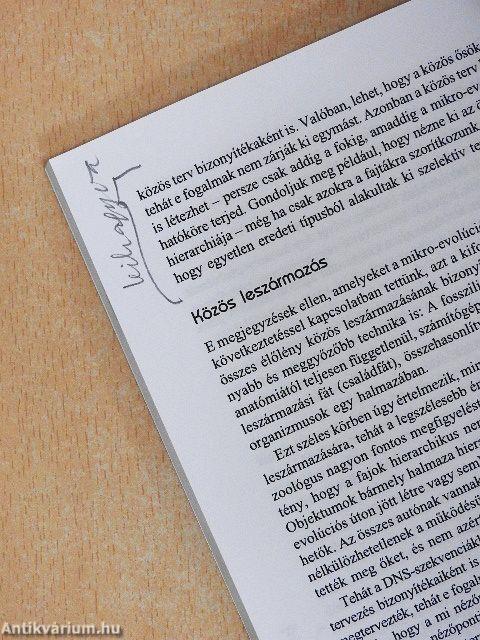 kihagyva
közös terv bizonyítékaként is. Valóban, lehet, hogy a közös ősök
tehát e fogalmak nem zárják ki egymást. Azonban a közös terv
is létezhet – persze csak addig a fokig, ameddig a mikro-ev
hatóköre terjed. Gondoljuk meg például, hogy nézne ki az ő
hierarchiája – még ha csak azokra a fajtákra szorítkozunk
hogy egyetlen eredeti típusból alakultak ki szelektív te
Közös leszármazás
E megjegyzések ellen, amelyeket a mikro-evolúció
következtetéssel kapcsolatban tettünk, azt a kifo
összes élőlény közös leszármazásának bizonyí
nyabb és meggyőzőbb technika is: A fosszili
anatómiától teljesen függetlenül, számítógép
leszármazási fát (családfát), összehasonlít
organizmusok egy halmazában.
Ezt széles körben úgy értelmezik, min
leszármazására, tehát a legszélesebb ér
zoológus nagyon fontos megfigyelést
tény, hogy a fajok hierarchikus ren
Objektumok bármely halmaza hier
evolúciós úton jött létre vagy sem
hetők. Az összes autónak vannak
nélkülözhetetlenek a működésü
tették meg őket, és nem azér
Tehát a DNS-szekvenciák
tervezés bizonyítékaiként is
megtervezték, tehát e fogal
hogy a mi nézőpont
Antikvárium.hu